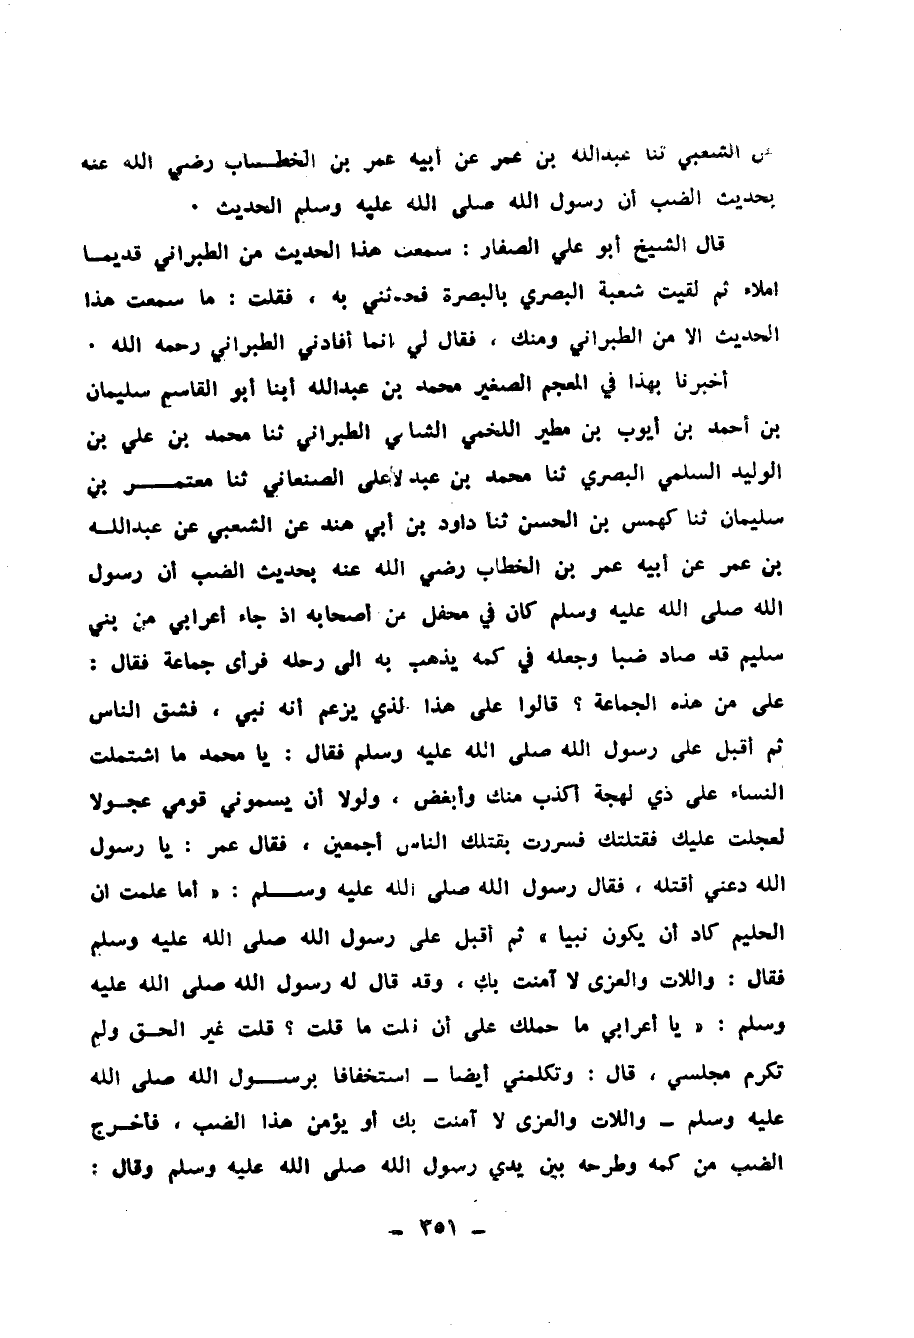 عن الشعبي ثنا عبدالله بن عمر عن أبيه عمر بن الخطـــاب رضي الله عنه
بحديث الضب أن رسول الله صلى الله عليه وسلم الحديث ٠
قال الشيخ أبو علي الصفار : سمعت هذا الحديث من الطبراني قديمـا
املاء ثم لقيت شعبة البصري بالبصرة فحدثني به ، فقلت : ما سمعت هذا
الحديث الا من الطبراني ومنك ، فقال لي انما أفادني الطبراني رحمه الله ٠
أخبرنا بهذا في المعجم الصغير محمد بن عبدالله أبنا أبو القاسم سليمان
بن أحمد بن أيوب بن مطير اللخمي الشامي الطبراني ثنا محمد بن علي بن
الوليد السلمي البصري ثنا محمد بن عبد لأعلى الصنعاني ثنا معتمـــر بن
سليمان ثنا كهمس بن الحسن ثنا داود بن أبي هند عن الشعبي عن عبداللـه
بن عمر عن أبيه عمر بن الخطاب رضي الله عنه بحديث الضب أن رسول
الله صلى الله عليه وسلم كان في محفل من أصحابه اذ جاء أعرابي من بني
سليم قد صاد ضبا وجعله في كمه يذهب به الى رحله فرأى جماعة فقال :
على من هذه الجماعة ؟ قالوا على هذا لذي يزعم أنه نبي ، فشق الناس
ثم أقبل على رسول الله صلى الله عليه وسلم فقال : يا محمد ما اشتملت
النساء على ذي لهجة أكذب منك وأبغض ، ولولا أن يسموني قومي عجـولا
لعجلت عليك فقتلتك فسررت بقتلك الناس أجمعين ، فقال عمر : يا رسول
الله دعني أقتله ، فقال رسول الله صلى الله عليه وســـلم : « أما علمت ان
الحليم كاد أن يكون نبيا » ثم أقبل على رسول الله صلى الله عليه وسلم
فقال : واللات والعزى لا آمنت بك ، وقد قال له رسول الله صلى الله عليه
وسلم : « يا أعرابي ما حملك على أن قلت ما قلت ؟ قلت غير الحـق ولم
تكرم مجلسي ، قال : وتكلمني أيضا ـ استخفافا برســـول الله صلى الله
عليه وسلم ـ واللات والعزى لا آمنت بك أو يؤمن هذا الضب ، فأخـرج
الضب من كمه وطرحه بين يدي رسول الله صلى الله عليه وسلم وقال :
ـ ٣٥١ ـ